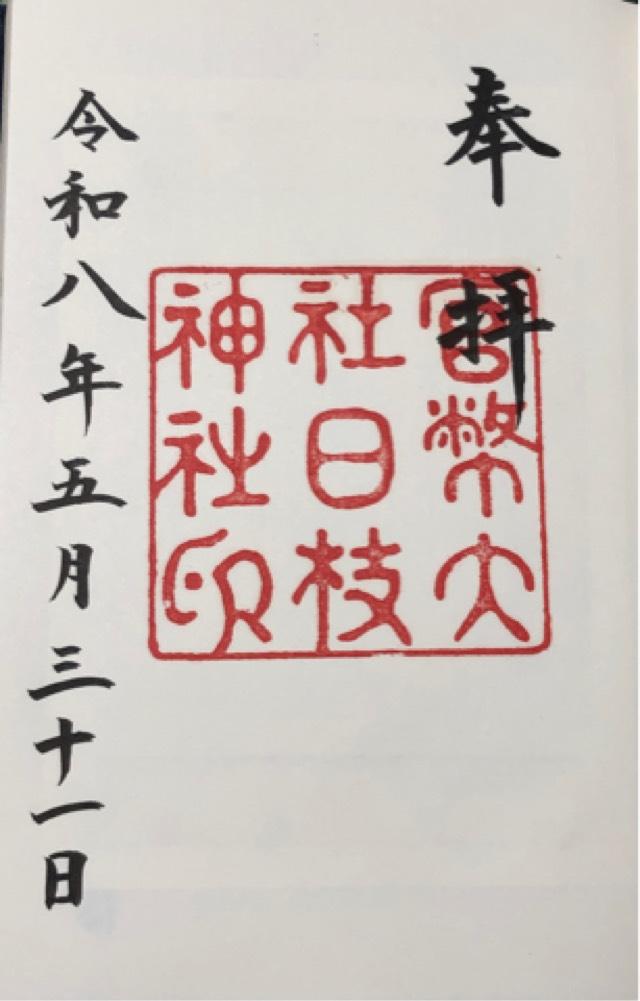 奉拝
官幣大
社日枝
神社印
令和八年五月三十一日